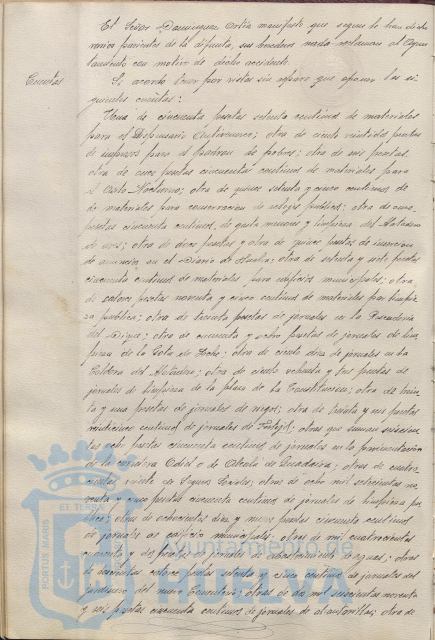 El Señor Dominguez Ortiz manifestó que segun le han dicho
varios parientes de la difunta, sus herederos nada reclaman al Ayun-
tamiento con motivo de dicho accidente.
Cuentas
Se acordó tener por vistas sin reparo que oponer las si-
guientes cuentas:
Una de cincuenta pesetas setenta centimos de materiales
para el Dispensario Antivenereo; otra de ciento veintidos pesetas
de impresos para el padron de pobres; otra de mil pesetas
otra de once pesetas cincuenta centimos de materiales para
el Nocturno; otra de quince setenta y cinco centimos de
de materiales para conservacion de relojes publicos; otra de once
pesetas cincuenta centimos, de gastos menores y limpieza del Matadero
de; otra de doce pesetas y otra de quince pesetas de insercion
de anuncios en el Diario de Huelva; otra de setenta y siete pesetas
cincuenta centimos de materiales para edificios municipales; otra
de catorce pesetas noventa y cinco centimos de materiales para limpie-
za publica; otra de treinta pesetas de jornales en la Pescaderia
del Dique; otra de cincuenta y ocho pesetas de jornales de lim-
pieza de la Gota de Leche; otra de ciento diez de jornales en la
Caldera del Matadero; otra de ciento ochenta y tres pesetas de
jornales de limpieza de la plaza de la Constitucion; otra de trein-
ta y una pesetas de jornales de riegos; otra de treinta y seis pesetas
veinticinco centimos de jornales de Festejos; otras que suman seiscien-
tas ocho pesetas cincuenta centimos de jornales en la pavimentación
de la carretera Odiel o de Alcalá de Guadaira; otras de cuatro-
cientas; otras de ocho mil setecientas no-
venta y cinco pesetas cincuenta centimos de jornales de limpieza pu-
blica; otras de ochocientas diez y nueve pesetas cincuenta centimos
de jornales de edificios municipales; otras de mil cuatrocientas
cuarenta y dos pesetas de jornales de abastecimiento de aguas; otras
de seiscientas catorce pesetas setenta y cinco centimos de jornales del
del nuevo Cementerio; otras de dos mil seiscientas noventa
y seis pesetas cincuenta centimos de jornales de alcantarillas; otra de
PORTUS MARIS
ET TERRAE
Ayuntamiento de
HUELVA